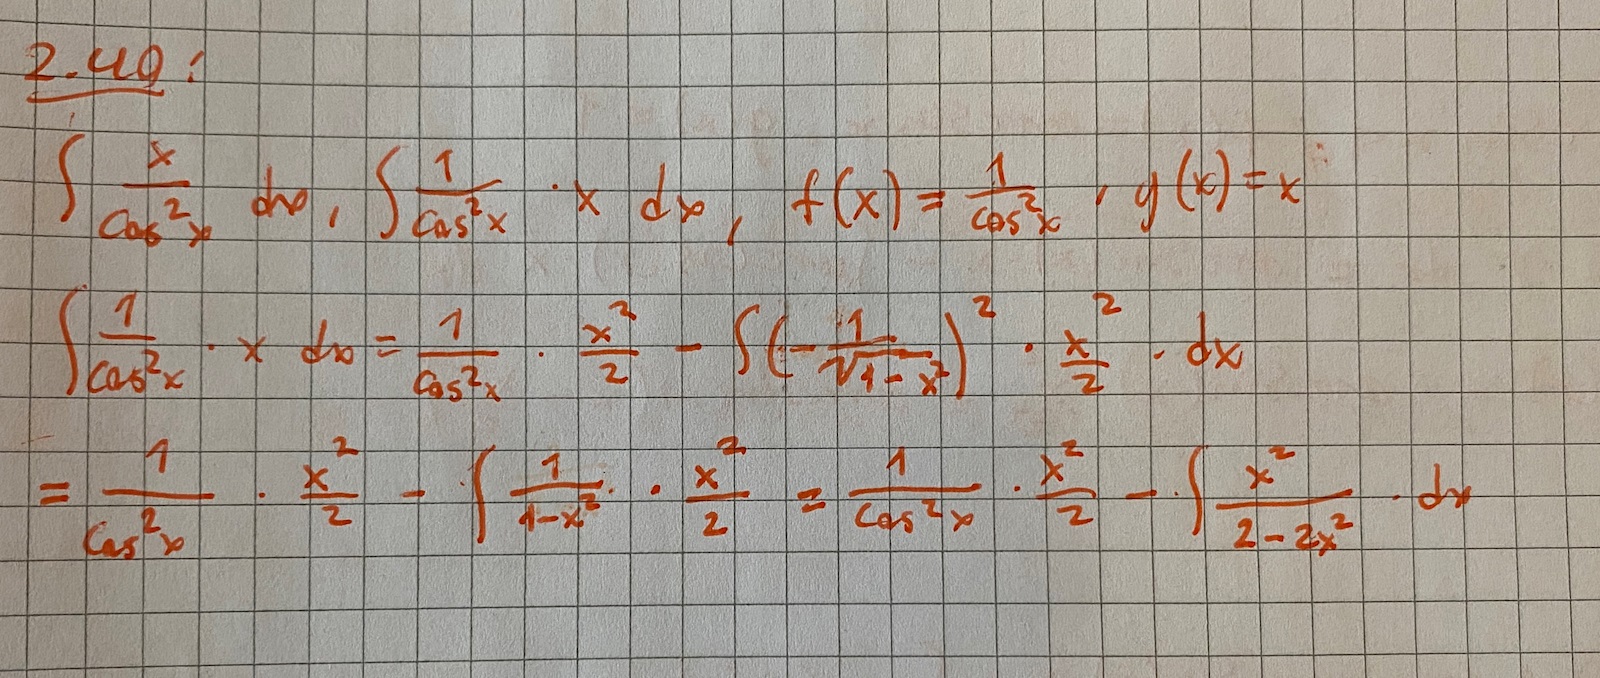 2.40:
∫ x/cos²x dx, ∫ 1/cos²x · x dx, f(x) = 1/cos²x, g(x) = x
∫ 1/cos²x · x dx = 1/cos²x · x²/2 - ∫ (-1/√(1-x²))² · x²/2 · dx
= 1/cos²x · x²/2 - ∫ 1/(1-x²) · x²/2 = 1/cos²x · x²/2 - ∫ x²/(2-2x²) · dx